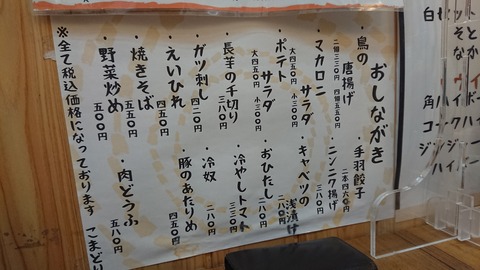 おしながき
・鳥の唐揚げ
二個二三〇円 四個四五〇円
・手羽餃子
二本四六〇円
・マカロニサラダ
大四五〇円 小三〇〇円
・ニンニク揚げ
三八〇円
・ポテトサラダ
大四五〇円 小三〇〇円
・キャベツの浅漬け
二八〇円
・長芋の千切り
三八〇円
・おひたし
二八〇円
・ガツ刺し
四二〇円
・冷やしトマト
三八〇円
・えいひれ
四五〇円
・冷奴
二八〇円
・焼きそば
五五〇円
・豚のあたりめ
四五〇円
・野菜炒め
五〇〇円
・肉どうふ
五八〇円
※全て税込価格になっております こまどり
白
セット